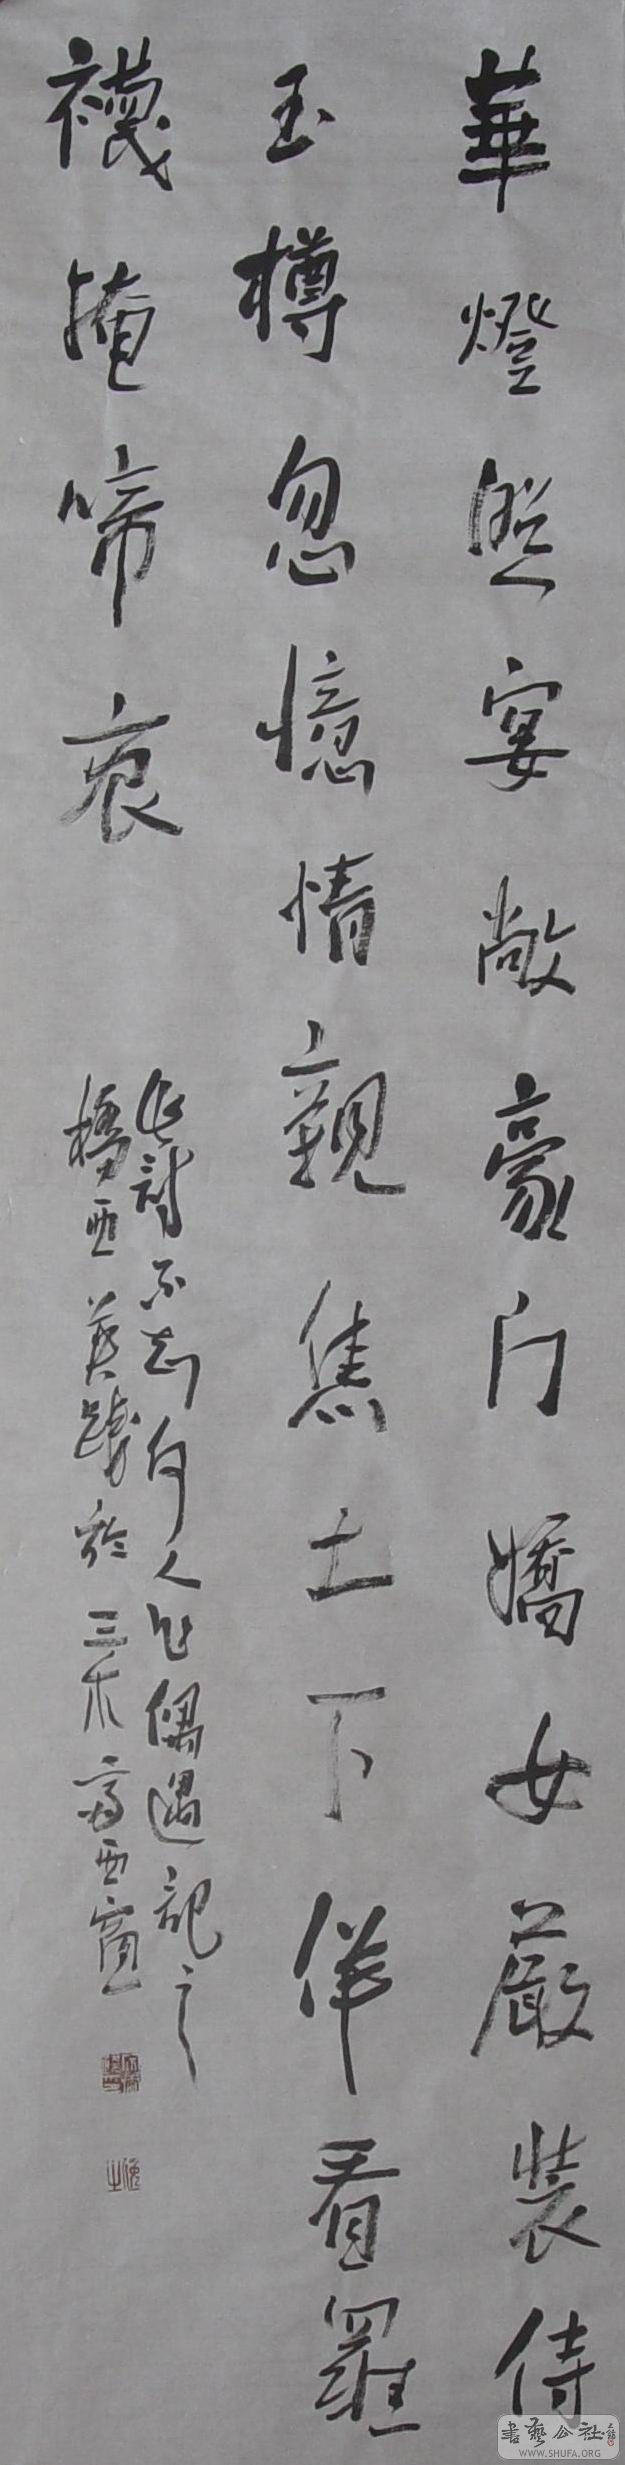 華燈照宴敞豪門嬌女嚴裝侍
玉樽忽憶情親焦土下佯看羅
襪掩啼痕
此詩不知何人作偶遇記之
橋西
於三木齋西窗
書藝公社
WWW.SHUFA.ORG